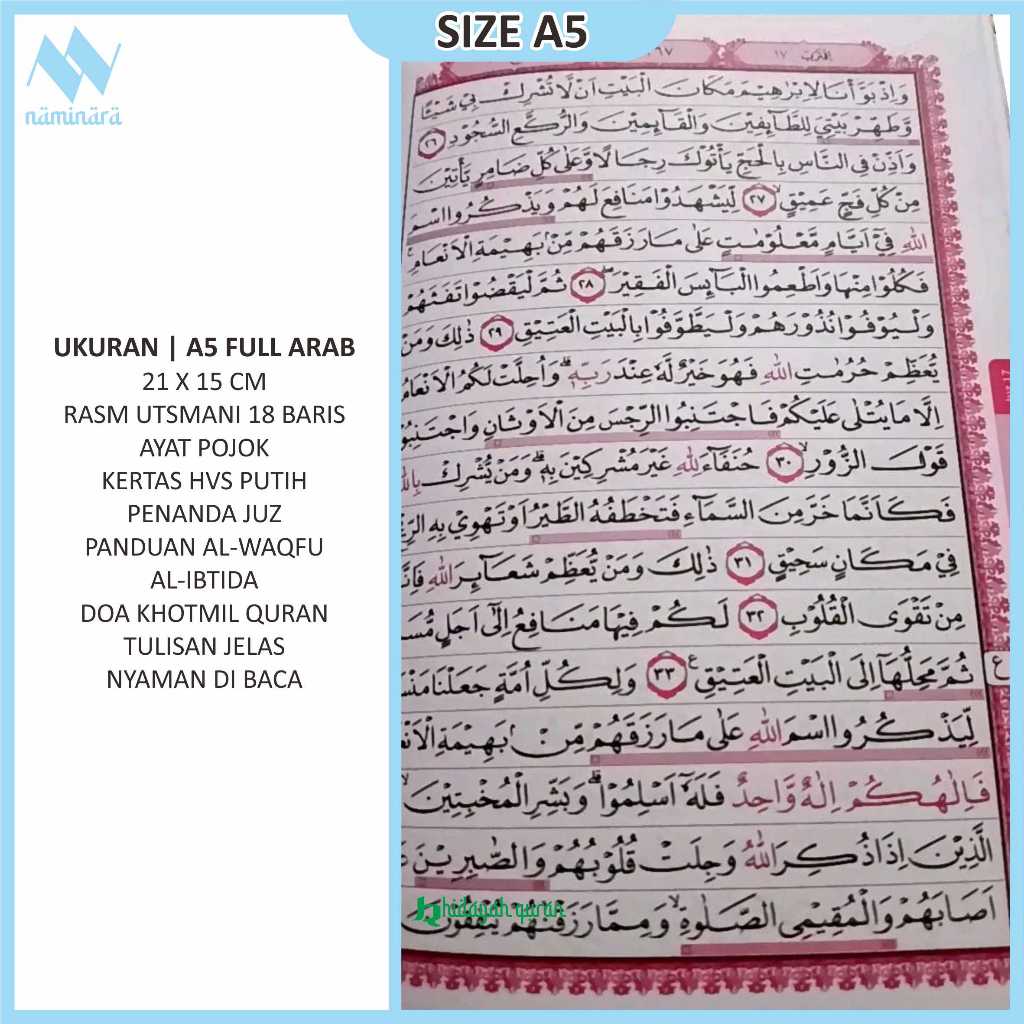 SIZE A5
näminärä
UKURAN | A5 FULL ARAB
21 X 15 CM
RASM UTSMANI 18 BARIS
AYAT POJOK
KERTAS HVS PUTIH
PENANDA JUZ
PANDUAN AL-WAQFU
AL-IBTIDA
DOA KHOTMIL QURAN
TULISAN JELAS
NYAMAN DI BACA
اقترب ١٧
وَاِذْ بَوَّأْنَا لِاِبْرٰهِيْمَ مَكَانَ الْبَيْتِ اَنْ لَّا تُشْرِكْ بِيْ شَيْـًٔا
وَّطَهِّرْ بَيْتِيَ لِلطَّاۤىِٕفِيْنَ وَالْقَاۤىِٕمِيْنَ وَالرُّكَّعِ السُّجُوْدِ ٢٦
وَاَذِّنْ فِى النَّاسِ بِالْحَجِّ يَأْتُوْكَ رِجَالًا وَّعَلٰى كُلِّ ضَامِرٍ يَّأْتِيْنَ
مِنْ كُلِّ فَجٍّ عَمِيْقٍ ۙ ٢٧ لِّيَشْهَدُوْا مَنَافِعَ لَهُمْ وَيَذْكُرُوا اسْمَ
اللّٰهِ فِيْٓ اَيَّامٍ مَّعْلُوْمٰتٍ عَلٰى مَا رَزَقَهُمْ مِّنْۢ بَهِيْمَةِ الْاَنْعَامِ ۚ
فَكُلُوْا مِنْهَا وَاَطْعِمُوا الْبَاۤىِٕسَ الْفَقِيْرَ ۖ ٢٨ ثُمَّ لْيَقْضُوْا تَفَثَهُمْ
وَلْيُوْفُوْا نُذُوْرَهُمْ وَلْيَطَّوَّفُوْا بِالْبَيْتِ الْعَتِيْقِ ٢٩ ذٰلِكَ وَمَنْ
يُّعَظِّمْ حُرُمٰتِ اللّٰهِ فَهُوَ خَيْرٌ لَّهٗ عِنْدَ رَبِّهٖ ۗ وَاُحِلَّتْ لَكُمُ الْاَنْعَامُ
اِلَّا مَا يُتْلٰى عَلَيْكُمْ فَاجْتَنِبُوا الرِّجْسَ مِنَ الْاَوْثَانِ وَاجْتَنِبُوْا
قَوْلَ الزُّوْرِ ۙ ٣٠ حُنَفَاۤءَ لِلّٰهِ غَيْرَ مُشْرِكِيْنَ بِهٖ ۗ وَمَنْ يُّشْرِكْ بِاللّٰهِ
فَكَاَنَّمَا خَرَّ مِنَ السَّمَاۤءِ فَتَخْطَفُهُ الطَّيْرُ اَوْ تَهْوِيْ بِهِ
فِيْ مَكَانٍ سَحِيْقٍ ٣١ ذٰلِكَ وَمَنْ يُّعَظِّمْ شَعَاۤىِٕرَ اللّٰهِ
مِنْ تَقْوَى الْقُلُوْبِ ٣٢ لَكُمْ فِيْهَا مَنَافِعُ اِلٰٓى اَجَلٍ
ثُمَّ مَحِلُّهَآ اِلَى الْبَيْتِ الْعَتِيْقِ ࣖ ٣٣ وَلِكُلِّ اُمَّةٍ جَعَلْنَا
لِّيَذْكُرُوا اسْمَ اللّٰهِ عَلٰى مَا رَزَقَهُمْ مِّنْۢ بَهِيْمَةِ
فَاِلٰهُكُمْ اِلٰهٌ وَّاحِدٌ فَلَهٗٓ اَسْلِمُوْا ۗ وَبَشِّرِ الْمُخْبِتِيْنَ ۙ
الَّذِيْنَ اِذَا ذُكِرَ اللّٰهُ وَجِلَتْ قُلُوْبُهُمْ وَالصّٰبِرِيْنَ
اَصَابَهُمْ وَالْمُقِيْمِى الصَّلٰوةِ ۙ وَمِمَّا رَزَقْنٰهُمْ يُنْفِقُوْنَ
hidayah quran